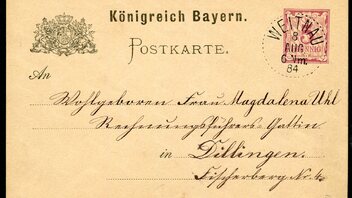 Königreich Bayern.
POSTKARTE.
WEITNAU
8
AUG
6 Nm.
84
An
Wohlgeboren Frau Magdalena Uhl
Rechnungsführers-Gattin
in Dillingen.
Fischerberg No 4